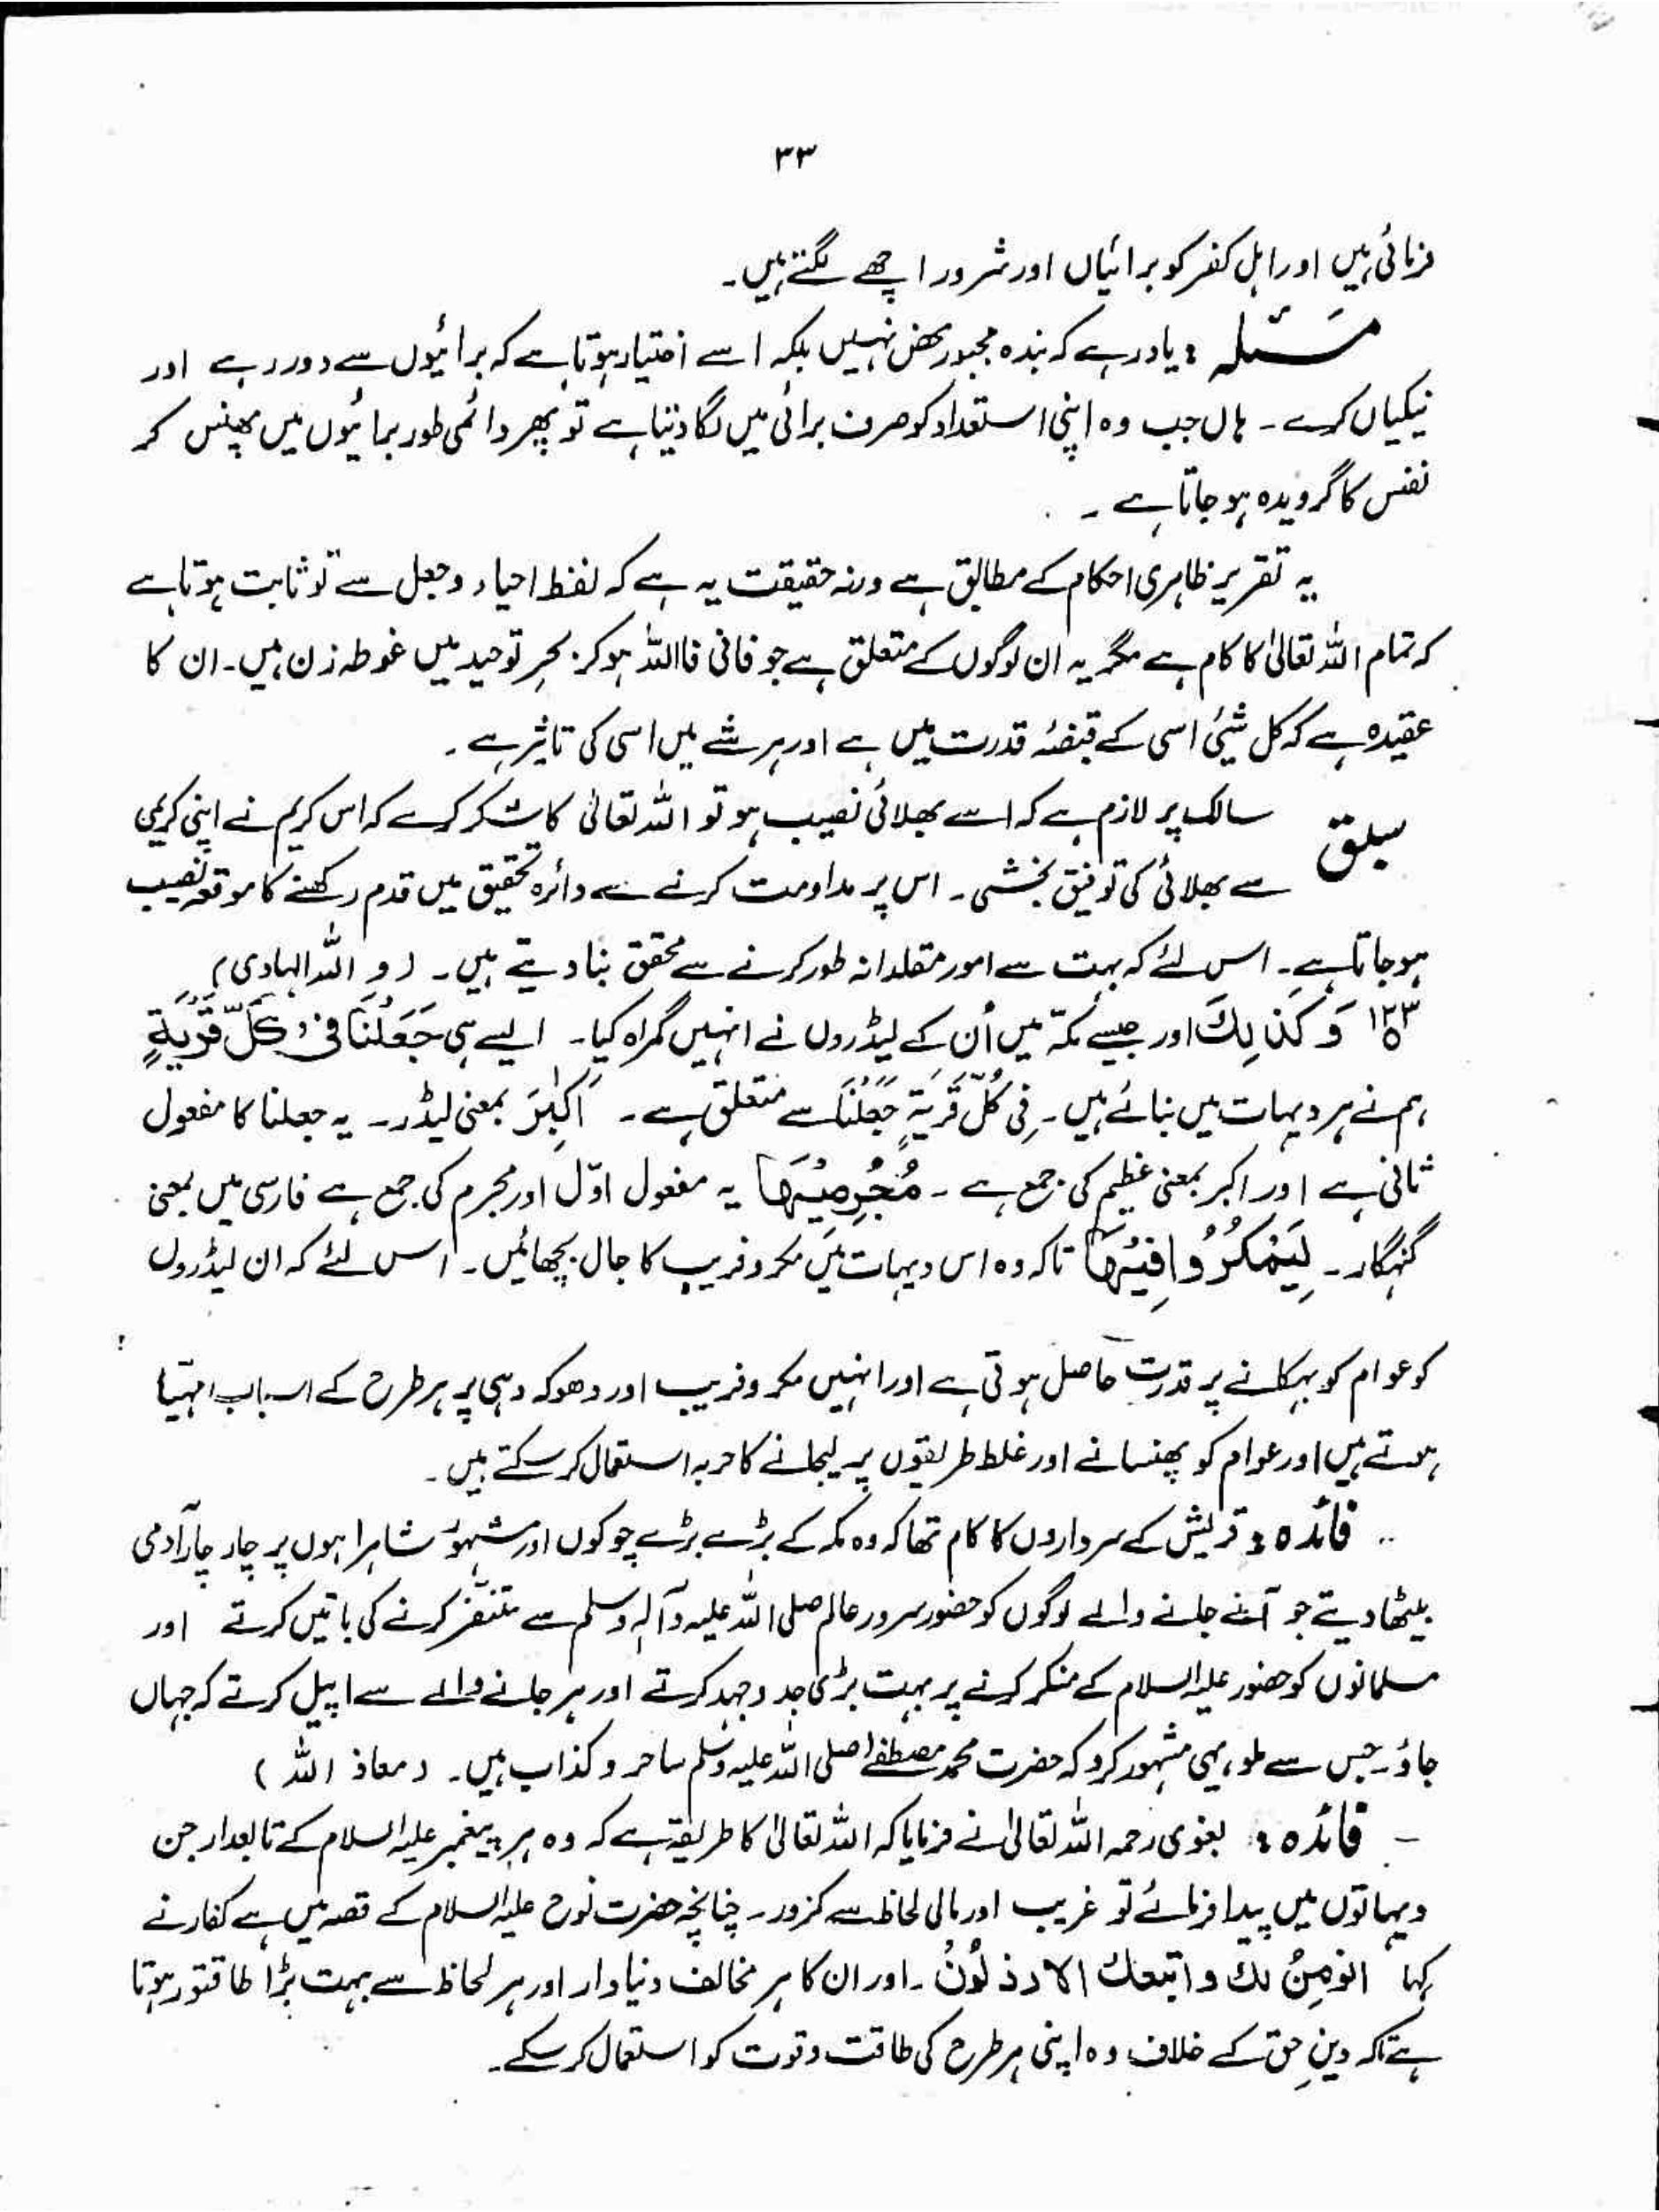 ۳۳
فرمائی ہیں اور اہل کفر کو برائیاں اور شرور اچھے لگتے ہیں۔
مسئلہ : یاد رہے کہ بندہ مجبور محض نہیں بلکہ اسے اختیار ہوتا ہے کہ برائیوں سے دور رہے اور
نیکیاں کرے ۔ ہاں جب وہ اپنی استعداد کو صرف برائی میں لگا دیتا ہے تو پھر دائمی طور برائیوں میں پھنس کر
نفس کا گرویدہ ہو جاتا ہے ۔
یہ تقریر ظاہری احکام کے مطابق ہے ورنہ حقیقت یہ ہے کہ لفظ احیاء و جعل سے تو ثابت ہوتا ہے
کہ تمام اللہ تعالیٰ کا کام ہے مگر یہ ان لوگوں کے متعلق ہے جو فانی فااللہ ہو کر بحرِ توحید میں غوطہ زن ہیں۔ ان کا
عقیدہ ہے کہ کل شیئ اسی کے قبضۂ قدرت میں ہے اور ہر شے میں اسی کی تاثیر ہے ۔
سبق سالک پر لازم ہے کہ اسے بھلائی نصیب ہو تو اللہ تعالیٰ کا شکر کرے کہ اس کریم نے اپنی کریمی
سے بھلائی کی توفیق بخشی۔ اس پر مداومت کرنے سے دائرہ تحقیق میں قدم رکھنے کا موقعہ نصیب
ہو جاتا ہے۔ اس لئے کہ بہت سے امور مقلدانہ طور کرنے سے محقق بنا دیتے ہیں۔ (و اللہ الہادی)
۱۲۳ وَكَذٰلِكَ اور جیسے مکّہ میں اُن کے لیڈروں نے انہیں گمراہ کیا۔ ایسے ہی جَعَلْنَا فِیْ كُلِّ قَرْيَةٍ
ہم نے ہر دیہات میں بنائے ہیں۔ فِی کُلِّ قَرْیَۃٍ جَعَلْنَا سے متعلق ہے ۔ اَکٰبِرَ بمعنی لیڈر۔ یہ جعلنا کا مفعول
ثانی ہے اور اکبر بمعنی عظیم کی جمع ہے ۔ مُجْرِمِیْهَا یہ مفعول اوّل اور مجرم کی جمع ہے فارسی میں بمعنی
گنہگار۔ لِیَمْكُرُوْا فِیْهَا تاکہ وہ اس دیہات میں مکر و فریب کا جال بچھائیں۔ اس لئے کہ ان لیڈروں
کو عوام کو بہکانے پر قدرت حاصل ہوتی ہے اور انہیں مکر و فریب اور دھوکہ دہی پر ہر طرح کے اسباب مہیّا
ہوتے ہیں اور عوام کو پھنسانے اور غلط طریقوں پر لیجانے کا حربہ استعمال کر سکتے ہیں ۔
فائدہ : قریش کے سرداروں کا کام تھا کہ وہ مکہ کے بڑے بڑے چوکوں اور مشہور شاہراہوں پر چار چار آدمی
بیٹھا دیتے جو آنے جانے والے لوگوں کو حضور سرور عالم صلی اللہ علیہ وآلہ وسلم سے متنفّر کرنے کی باتیں کرتے اور
مسلمانوں کو حضور علیہ السلام کے منکر کرنے پر بہت بڑی جد وجہد کرتے اور ہر جانے والے سے اپیل کرتے کہ جہاں
جاؤ۔ جس سے ملو، یہی مشہور کرو کہ حضرت محمد مصطفےٰ صلی اللہ علیہ وسلم ساحر و کذاب ہیں۔ (معاذ اللہ)
فائدہ : بغوی رحمہ اللہ تعالیٰ نے فرمایا کہ اللہ تعالیٰ کا طریقہ ہے کہ وہ ہر پیغمبر علیہ السلام کے تابعدار جن
دیہاتوں میں پیدا فرمائے تو غریب اور مالی لحاظ سے کمزور۔ چنانچہ حضرت نوح علیہ السلام کے قصہ میں ہے کفار نے
کہا انؤمنُ لك و اتبعك الارذلُونُ ۔ اور ان کا ہر مخالف دنیا دار اور ہر لحاظ سے بہت بڑا طاقتور ہوتا
ہے تاکہ دینِ حق کے خلاف وہ اپنی ہر طرح کی طاقت و قوت کو استعمال کر سکے۔